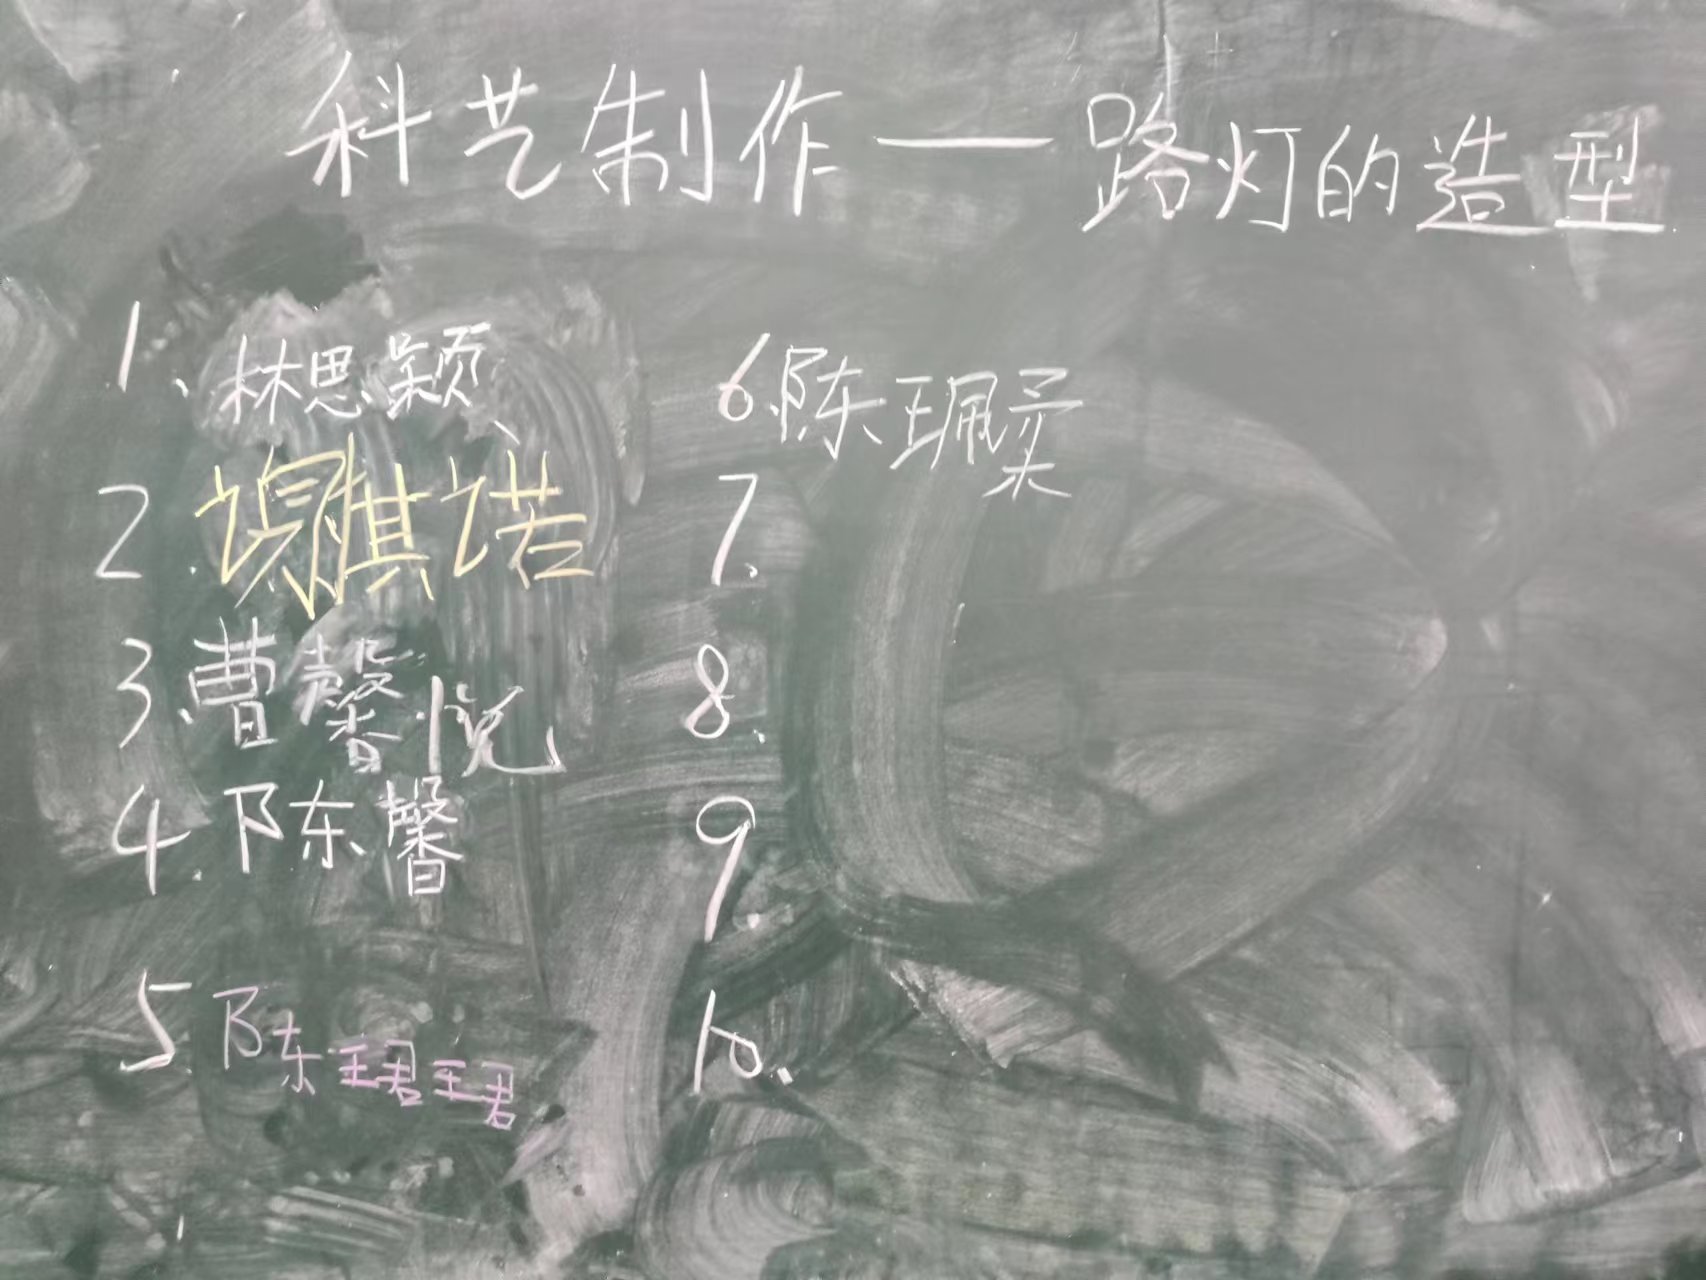 科艺制作—路灯的造型
1、林思颖
2.琪诺
3、曹馨悦
4.陈馨
5.陈珺珺
6.陈珮柔
7.
8.
9
10.